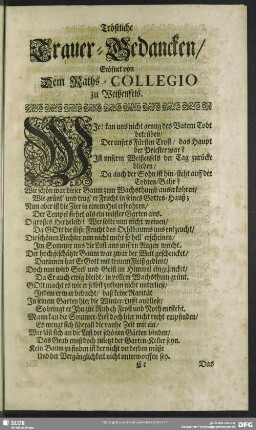 Tröstliche
Trauer-Gedancken/
Eröfnet von
Dem Raths-COLLEGIO
zu Weißenfels.
Wie kan uns nicht genug des Vatern Todt
betrüben/
Der unsers Fürsten Trost/ das Haupt
der Priester war?
Ist unserm Weißenfels der Tag zurücke
blieben/
Da auch der Sohn ist hin steht auff der
Todten-Bahr?
Wie schön war dieser Baum zum Wachsthum auserkohren/
Wie grünt' und trug er Frucht in seines Gottes-Hauß;
Nun aber ist die Zier in einem Hui erfrohren/
Der Tempel siehet als ein wüster Garten aus.
O grosses Hertzeleid! Wer solte nun nicht weinen/
Da GOtt die süsse Frucht des Oehlbaums uns entzeucht/
Die schönen Liechter uns nicht mehr so hell erscheinen/
Im Sommer uns die Lust aus unsern Augen weicht.
Der hochgeschätzte Baum war zwar der Welt geschencket/
Darinnen hat Er Gott mit treuem Fleiß gedient/
Doch nun wird Seel und Geist im Himmel eingesencket/
Da Er auch ewig bleibt/ in vollem Wachsthum grünt.
GOtt macht es wie er selbst zuthun nicht unterliesse/
Indem er war bedacht/ daß keine Rarität
In seinem Garten hier die Winter-Lust anbliesse/
So bringt er Ihn zur Ruh eh Frost und Noth entsteht.
Man kan die Sommer-Lust doch hier nicht recht empfinden/
Es menget sich überall die rauhe Zeit mit ein/
Wer läst sich an die Lust der schönen Gärten binden/
Das Grab muß doch zuletzt der Garten-Keller seyn.
Kein Baum zu finden ist der nicht verderben müste
Und der Vergänglichkeit nicht unterworffen sey.
Cc Das
SLUB